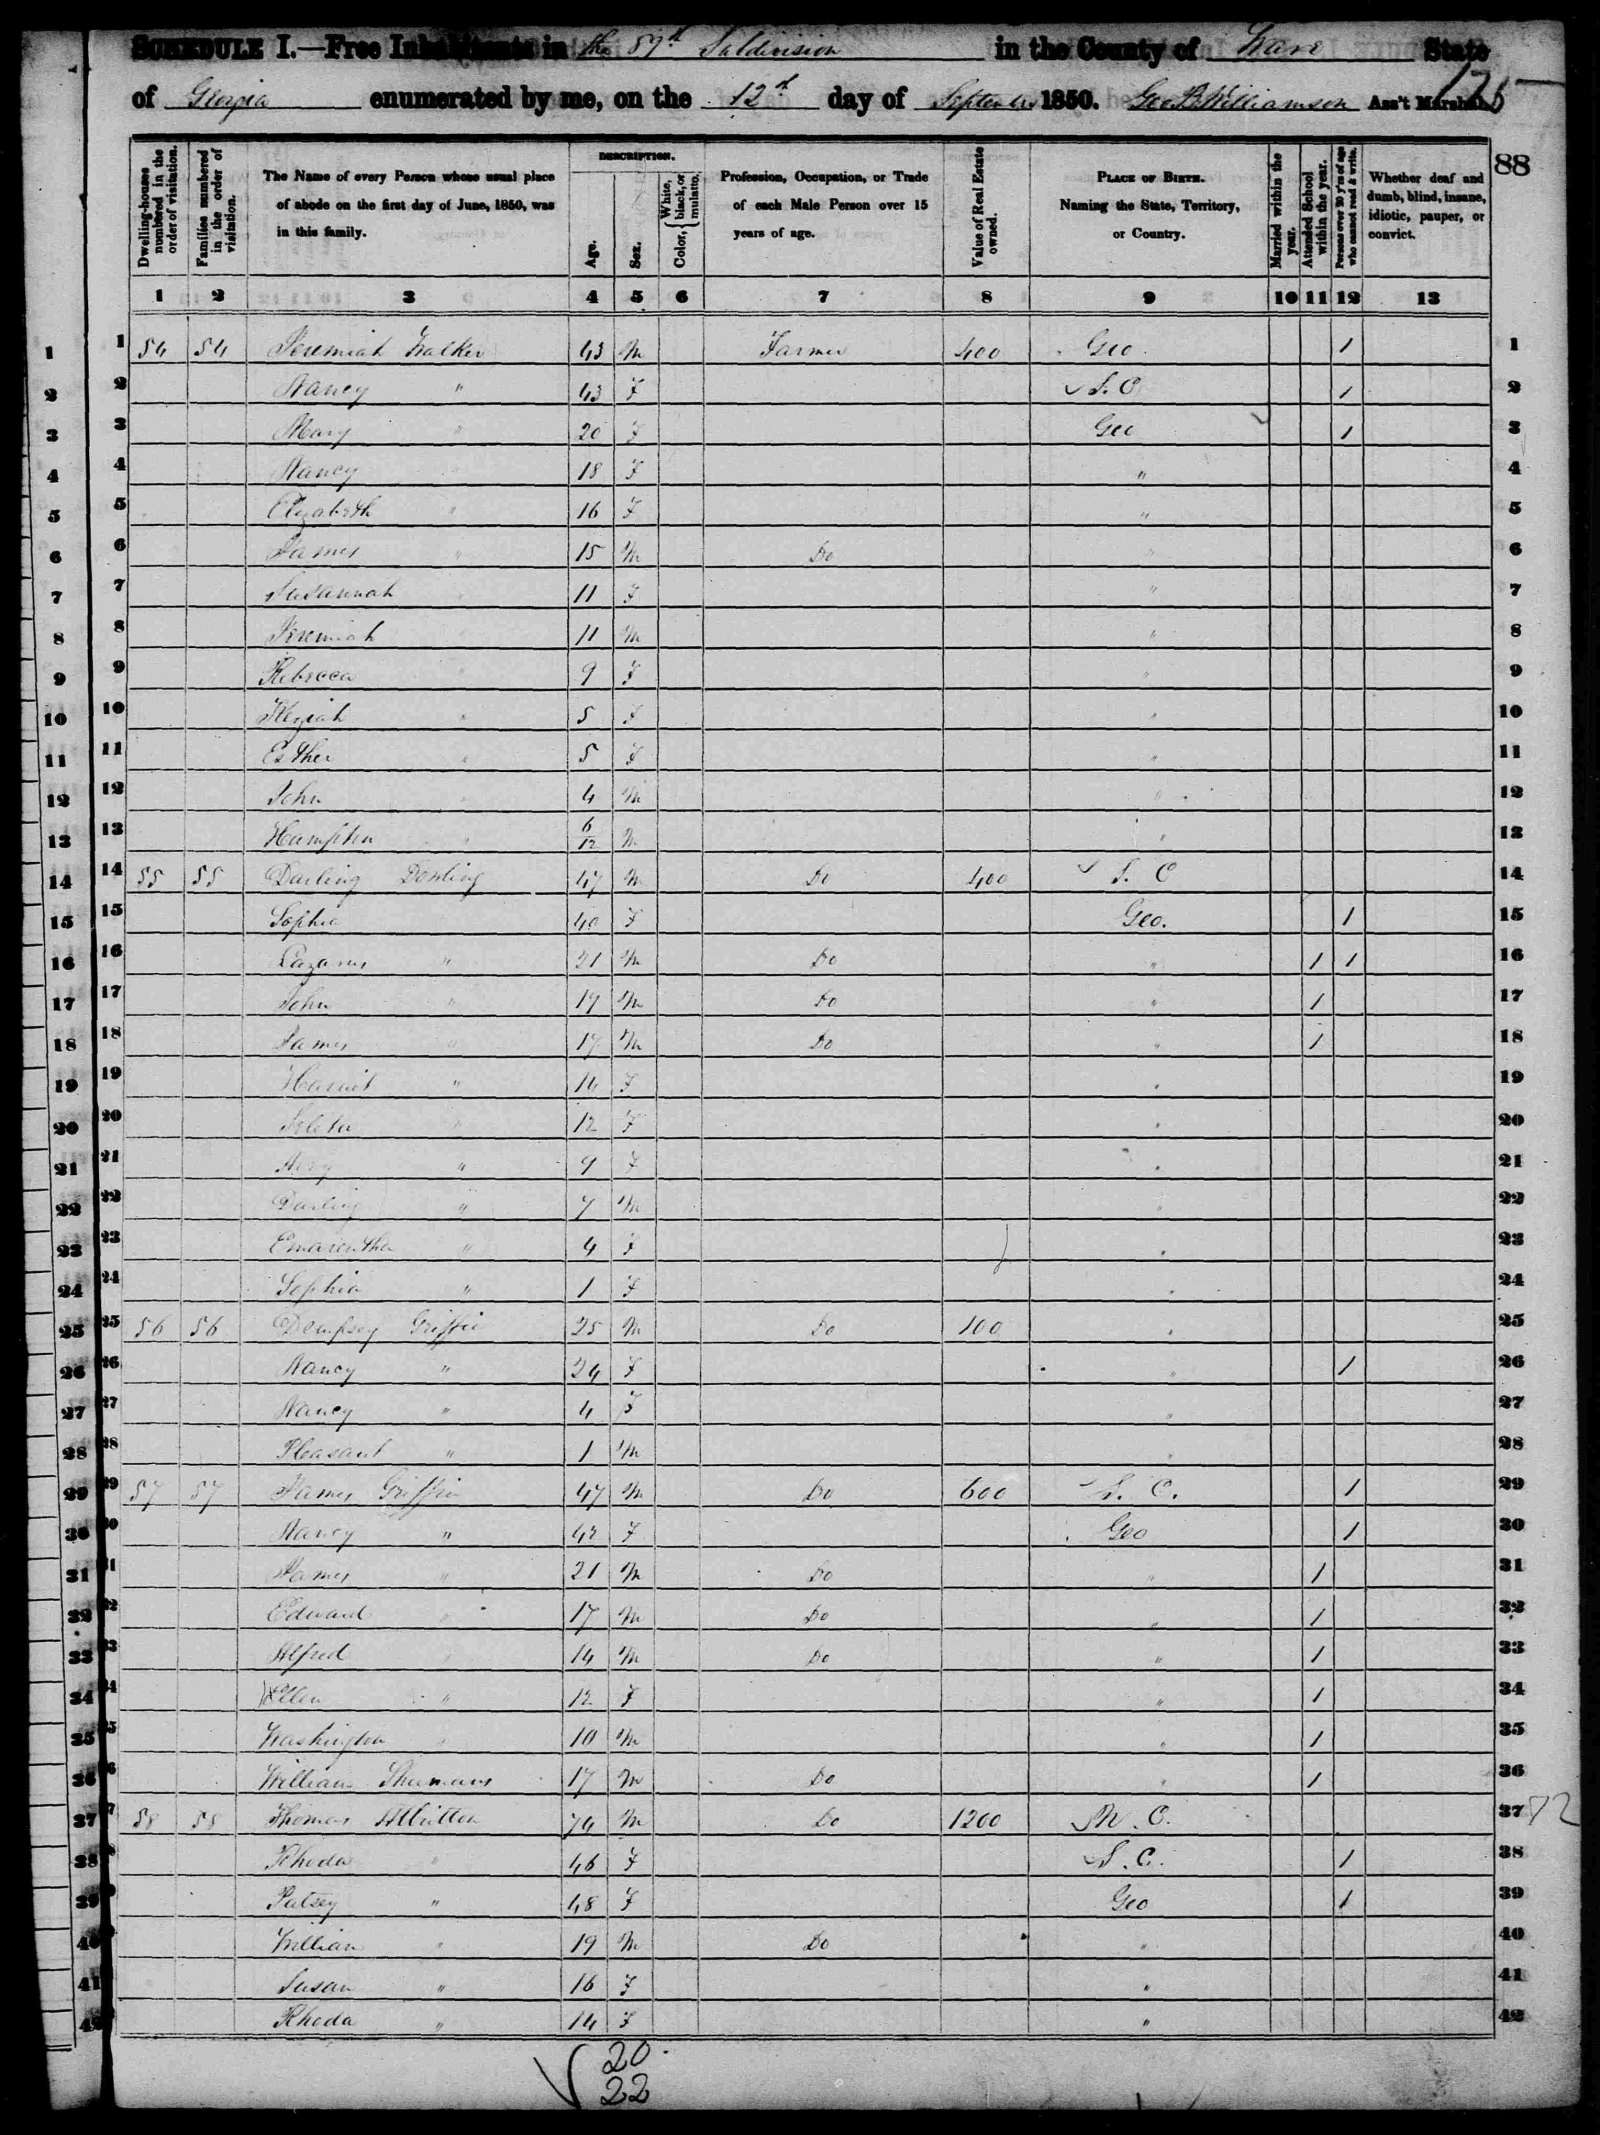 SCHEDULE I.—Free Inhabitants in the 87th Subdivision in the County of Ware State
of Georgia enumerated by me, on the 12th day of September 1850. Geo B Williamson Ass't Marshal.
175
88
Dwelling-houses numbered in the order of visitation.
Families numbered in the order of visitation.
The Name of every Person whose usual place of abode on the first day of June, 1850, was in this family.
DESCRIPTION.
Age.
Sex.
Color, { White, black, or mulatto.
Profession, Occupation, or Trade of each Male Person over 15 years of age.
Value of Real Estate owned.
PLACE OF BIRTH. Naming the State, Territory, or Country.
Married within the year.
Attended School within the year.
Persons over 20 y'rs of age who cannot read & write.
Whether deaf and dumb, blind, insane, idiotic, pauper, or convict.
1 2 3 4 5 6 7 8 9 10 11 12 13
1 54 54 Jeremiah Walker 43 M Farmer 400 Geo 1 1
2 Nancy " 43 F S. C 1 2
3 Mary " 20 F Geo 1 3
4 Nancy " 18 F " 4
5 Elizabeth " 16 F " 5
6 James " 15 M Do " 6
7 Susannah " 11 F " 7
8 Jeremiah " 11 M " 8
9 Rebecca " 9 F " 9
10 Keziah " 5 F " 10
11 Esther " 5 F " 11
12 John " 4 M " 12
13 Hampton " 6/12 M " 13
14 55 55 Darling Dowling 47 M Do 400 S. C 14
15 Sophia 40 F Geo. 1 15
16 Lazarus " 21 M Do " 1 1 16
17 John " 19 M Do " 1 17
18 James " " 17 M Do " 1 18
19 Harriet " 14 F " 19
20 " 12 F " 20
21 " 9 F " 21
22 Darling " 7 M " 22
23 " 4 F " 23
24 Sophia " 1 F " 24
25 56 56 Dempsey Griffin 25 M Do 100 " 25
26 Nancy " 24 F " 1 26
27 Nancy " 4 F " 27
28 Pleasant " 1 M " 28
29 57 57 James Griffin 47 M Do 600 S. C. 1 29
30 Nancy " 42 F Geo 1 30
31 James " 21 M Do " 1 31
32 Edward " 17 M Do " 1 32
33 Alfred " 14 M Do " 1 33
34 Ellen " 12 F " 1 34
35 Washington " 10 M " 1 35
36 William 17 M Do " 1 36
37 58 58 Thomas Albritton 74 M Do 1200 N. C. 37
38 Rhoda " 46 F S. C. 1 38
39 Patsey " 48 F Geo 1 39
40 William " 19 M Do " 40
41 Susan " 16 F " 41
42 Rhoda " 14 F " 42
20
22